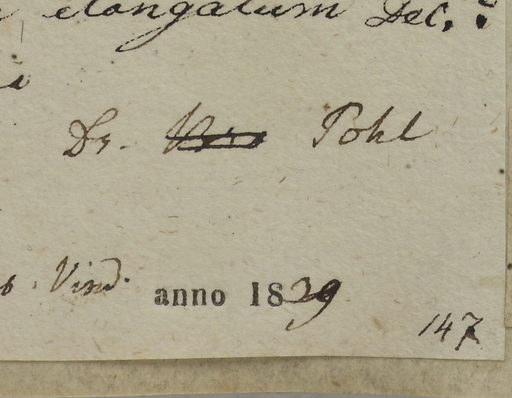 elongatum Dec.
Dr. Pohl
Vind. anno 1839
147